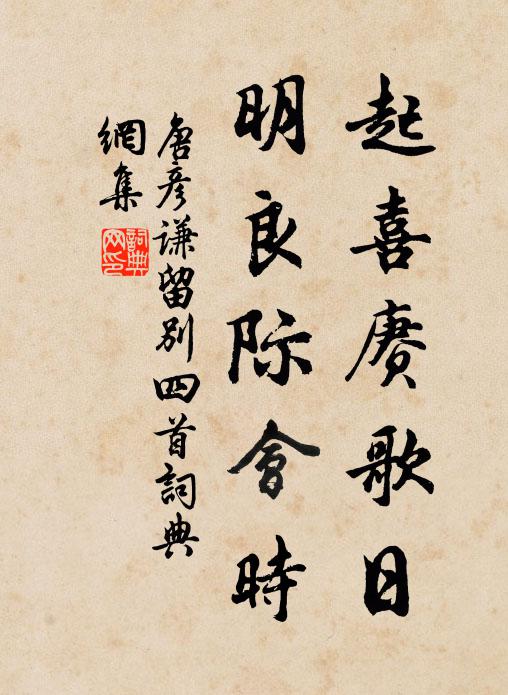 起喜赓歌日
明良际會時
唐彦谦留别四首詞典
網集
詞典网印